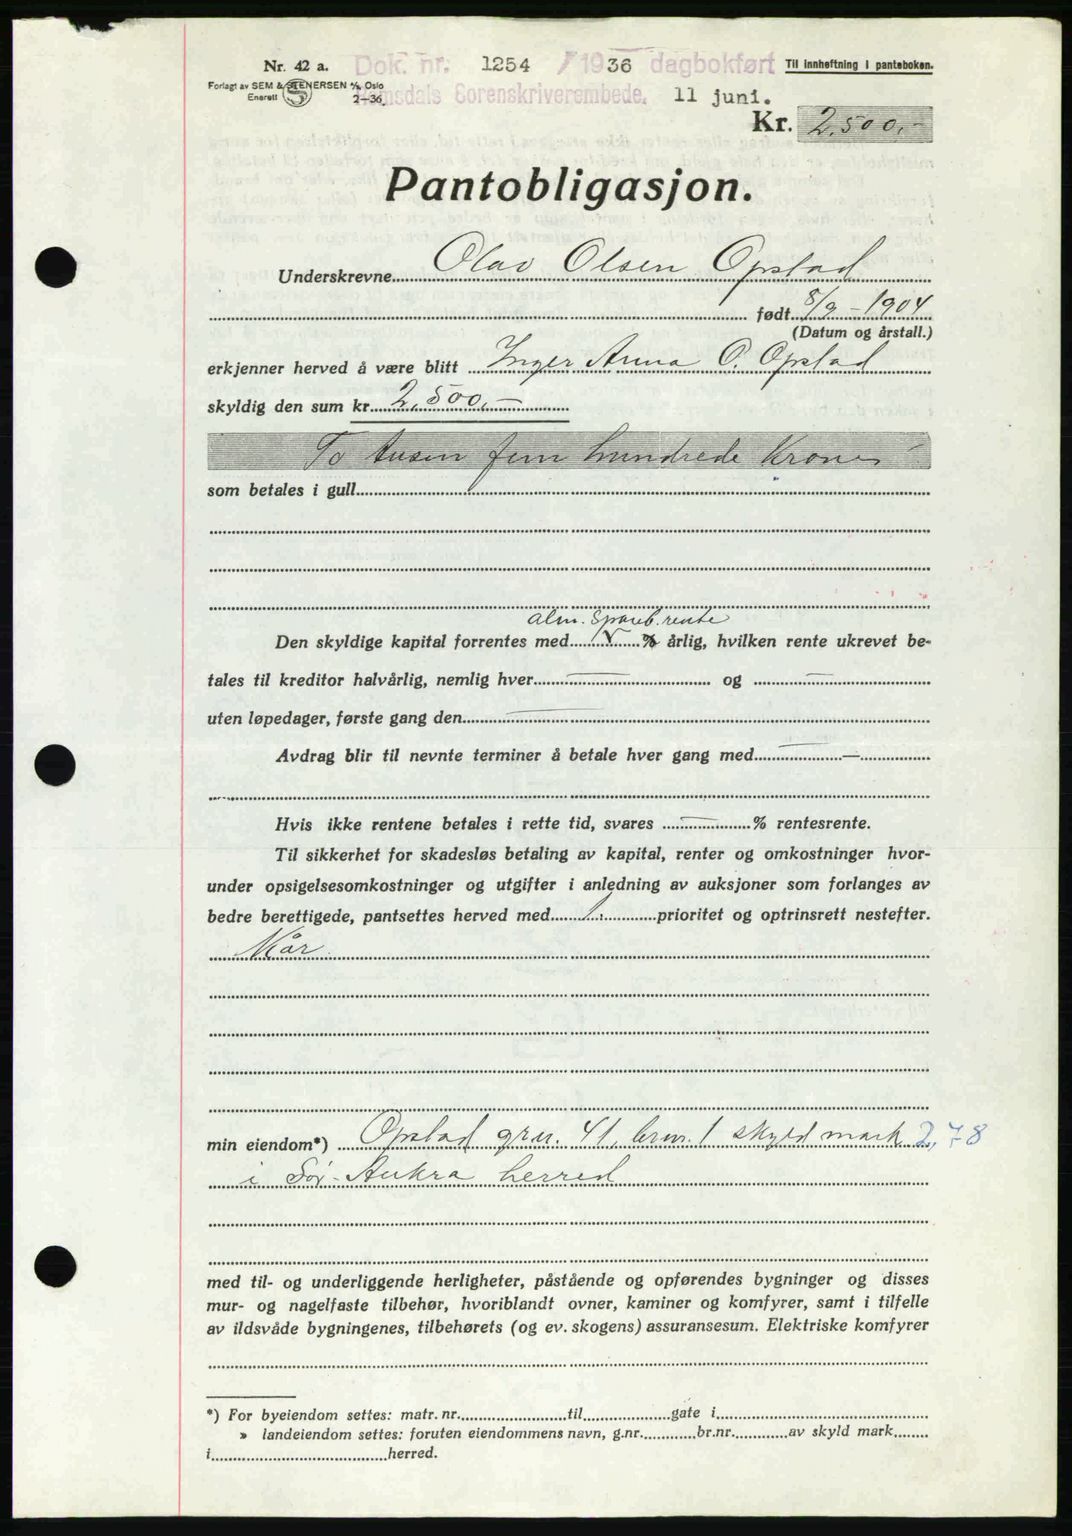 Nr. 42 a. Dok. nr. 1254 / 1936 dagbokført Til innheftning i panteboken.
Forlagt av SEM & STENERSEN A/S, Oslo
Enerett S 2-36. Romsdals Sorenskriverembede. 11 juni.
Kr. 2.500,-
Pantobligasjon.
Underskrevne Olav Olsen Opstad
født 8/9 - 1904
(Datum og årstall.)
erkjenner herved å være blitt Inger Anna O. Opstad
skyldig den sum kr. 2.500,-
To tusen fem hundrede Kroner
som betales i gull
alm. spareb. rente
Den skyldige kapital forrentes med % årlig, hvilken rente ukrevet be-
tales til kreditor halvårlig, nemlig hver — og —
uten løpedager, første gang den —
Avdrag blir til nevnte terminer å betale hver gang med —
Hvis ikke rentene betales i rette tid, svares — % rentesrente.
Til sikkerhet for skadesløs betaling av kapital, renter og omkostninger hvor-
under opsigelsesomkostninger og utgifter i anledning av auksjoner som forlanges av
bedre berettigede, pantsettes herved med 1. prioritet og optrinsrett nestefter.
Kår
min eiendom*) Opstad grn. 41, brn. 1 skyld mark 2,78
i Sør-Aukra herred
med til- og underliggende herligheter, påstående og opførendes bygninger og disses
mur- og nagelfaste tilbehør, hvoriblandt ovner, kaminer og komfyrer, samt i tilfelle
av ildsvåde bygningenes, tilbehørets (og ev. skogens) assuransesum. Elektriske komfyrer
*) For byeiendom settes: matr. nr. til gate i
» landeiendom settes: foruten eiendommens navn, g.nr. br.nr. av skyld mark
i herred.